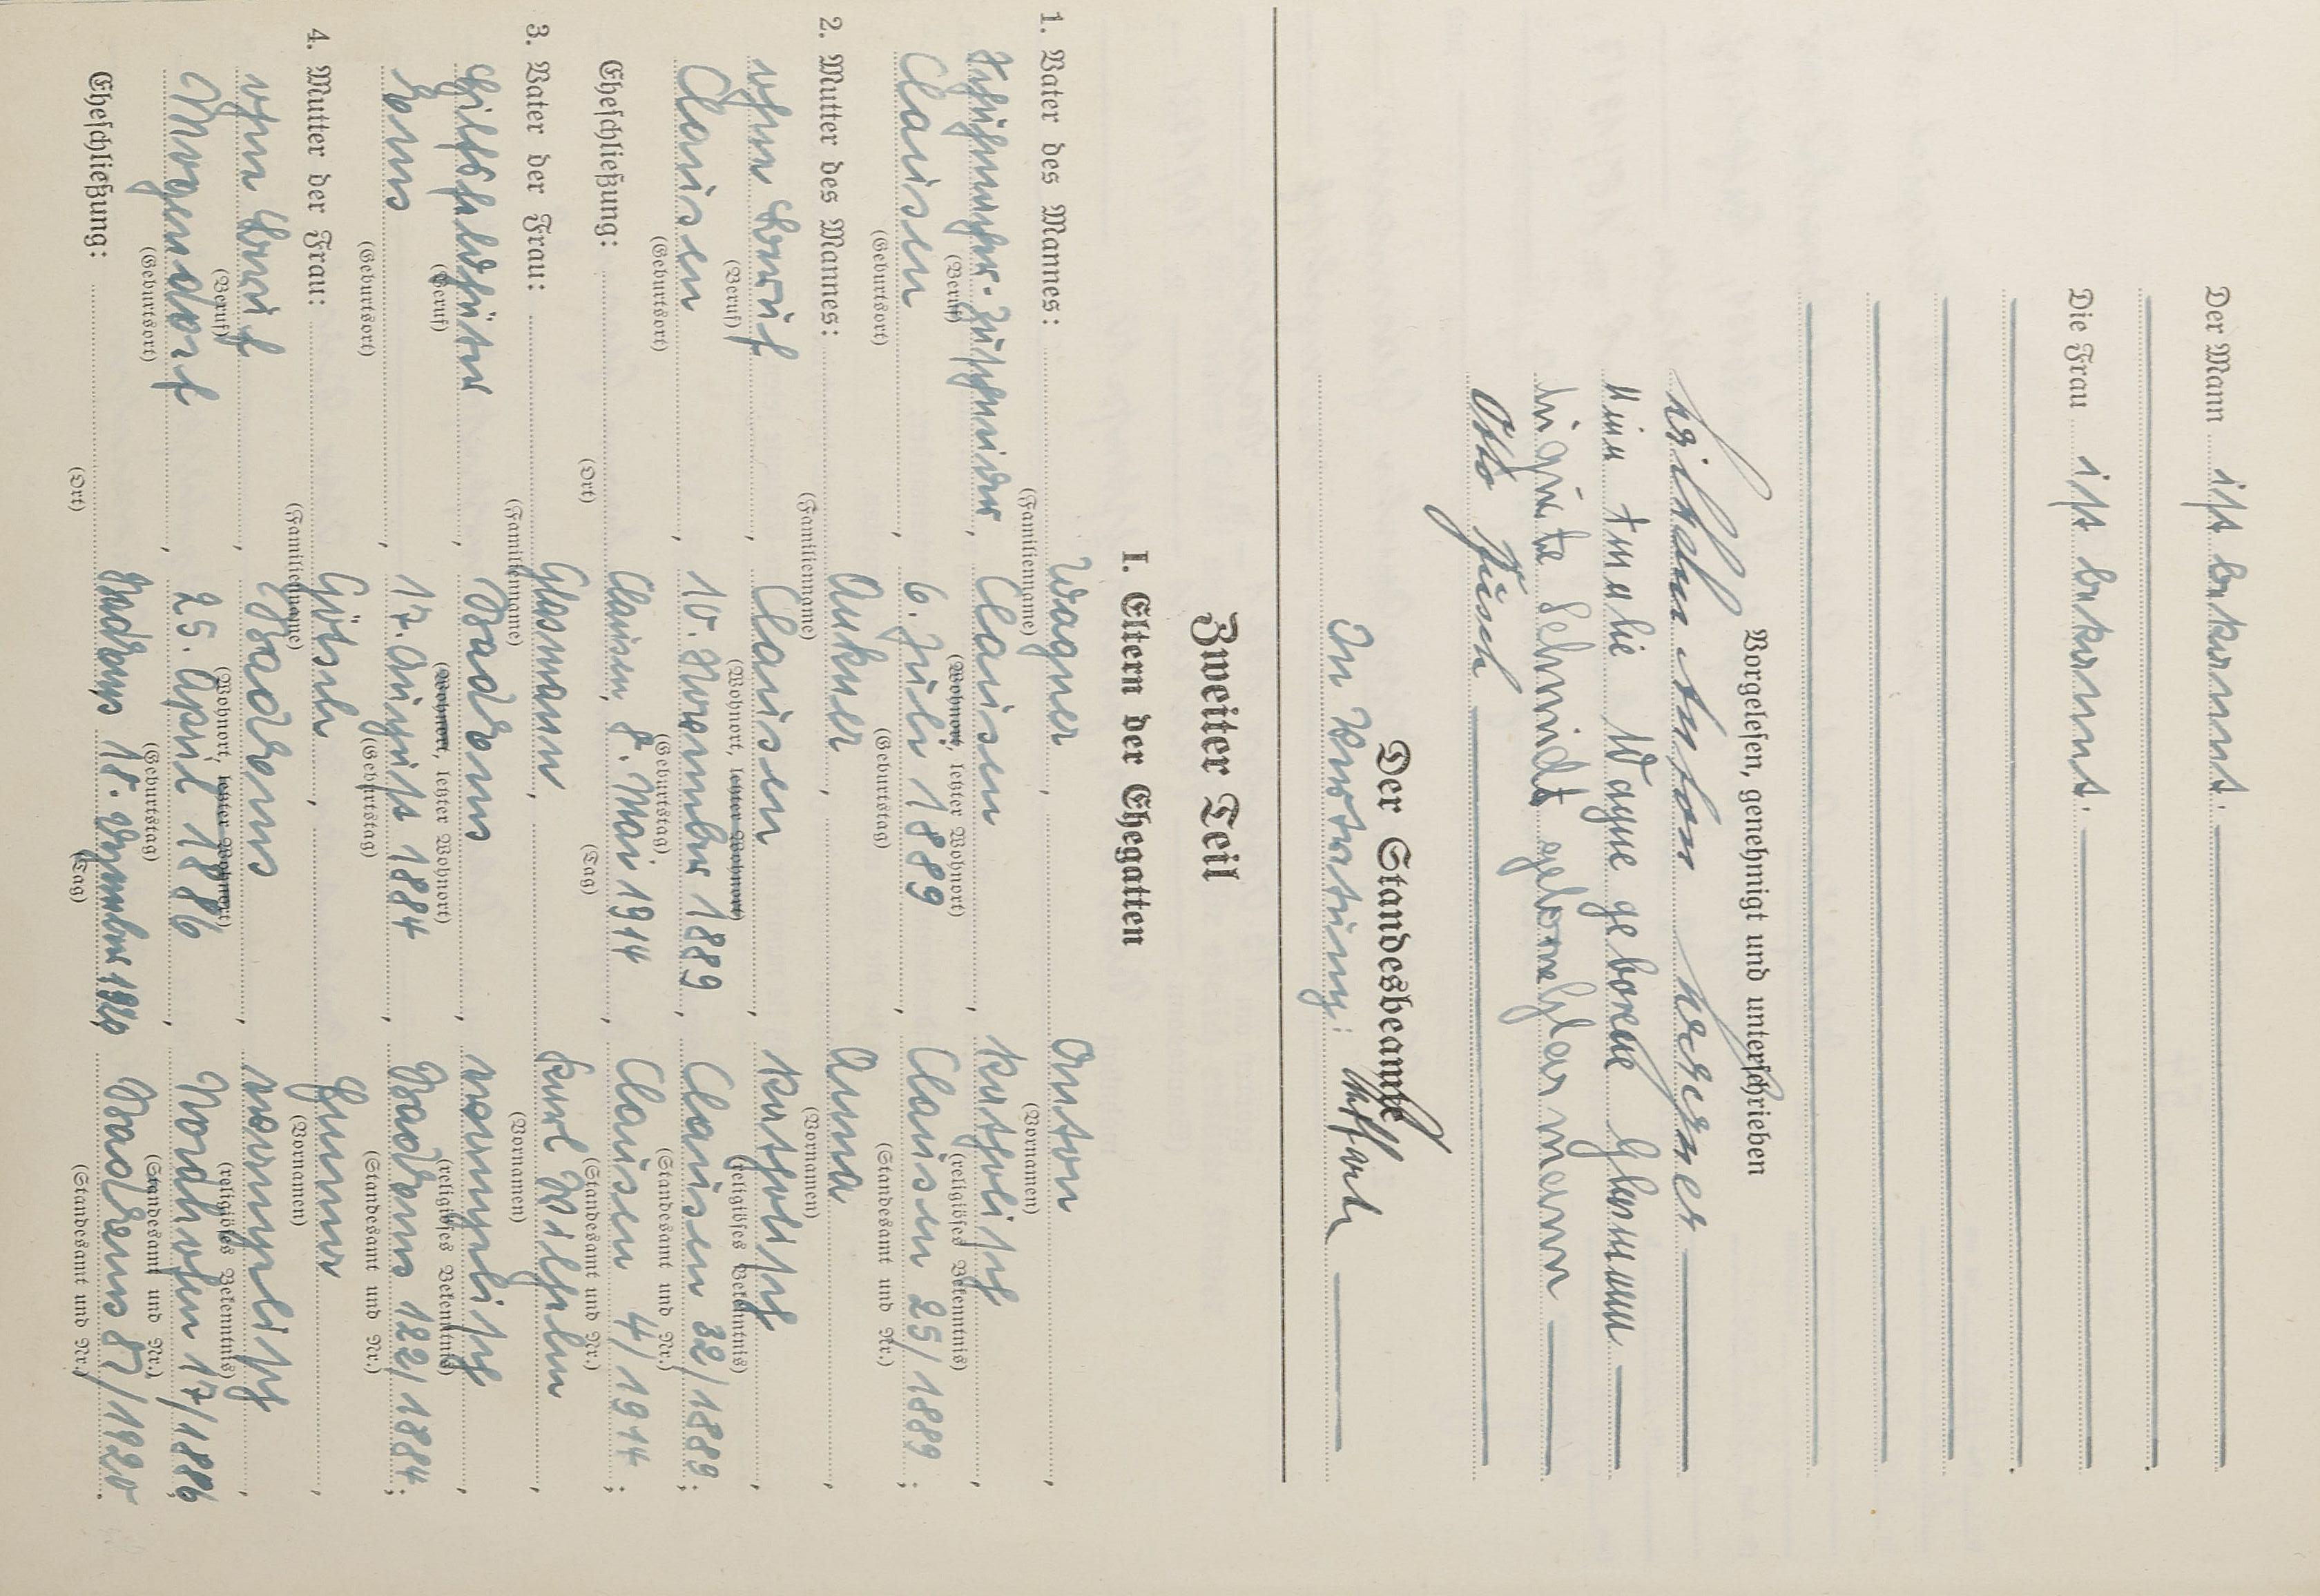 Der Mann ist bekannt.
Die Frau ist bekannt.
Vorgelesen, genehmigt und unterschrieben
Wilhelm Anton Wagner
Anna Wagner geborene Glasmann
Schmidt geborene Glasmann
Otto
Der Standesbeamte
In Vertretung:
Zweiter Teil
I. Eltern der Ehegatten
1. Vater des Mannes: Wagner, Anton,
(Familienname) (Vornamen)
Claisen katholisch,
(Beruf) (Wohnort, letzter Wohnort) (religiöses Bekenntnis)
Claisen, 6. Juli 1889, Claisen 25/1889;
(Geburtsort) (Geburtstag) (Standesamt und Nr.)
2. Mutter des Mannes: Aukner, Anna,
(Familienname) (Vornamen)
ohne Beruf, Claisen, katholisch,
(Beruf) (Wohnort, letzter Wohnort) (religiöses Bekenntnis)
Claisen, 10. November 1889, Claisen 32/1889;
(Geburtsort) (Geburtstag) (Standesamt und Nr.)
Eheschließung: Claisen, 8. Mai 1914, Claisen 4/1914;
(Ort) (Tag) (Standesamt und Nr.)
3. Vater der Frau: Glasmann, Karl Wilhelm,
(Familienname) (Vornamen)
evangelisch,
(Beruf) (Wohnort, letzter Wohnort) (religiöses Bekenntnis)
17. August 1884, 122/1884;
(Geburtsort) (Geburtstag) (Standesamt und Nr.)
4. Mutter der Frau:
(Familienname) (Vornamen)
ohne Beruf, evangelisch,
(Beruf) (Wohnort, letzter Wohnort) (religiöses Bekenntnis)
25. April 1886, 17/1886;
(Geburtsort) (Geburtstag) (Standesamt und Nr.)
Eheschließung: 18. Dezember 1920, 87/1920.
(Ort) (Tag) (Standesamt und Nr.)